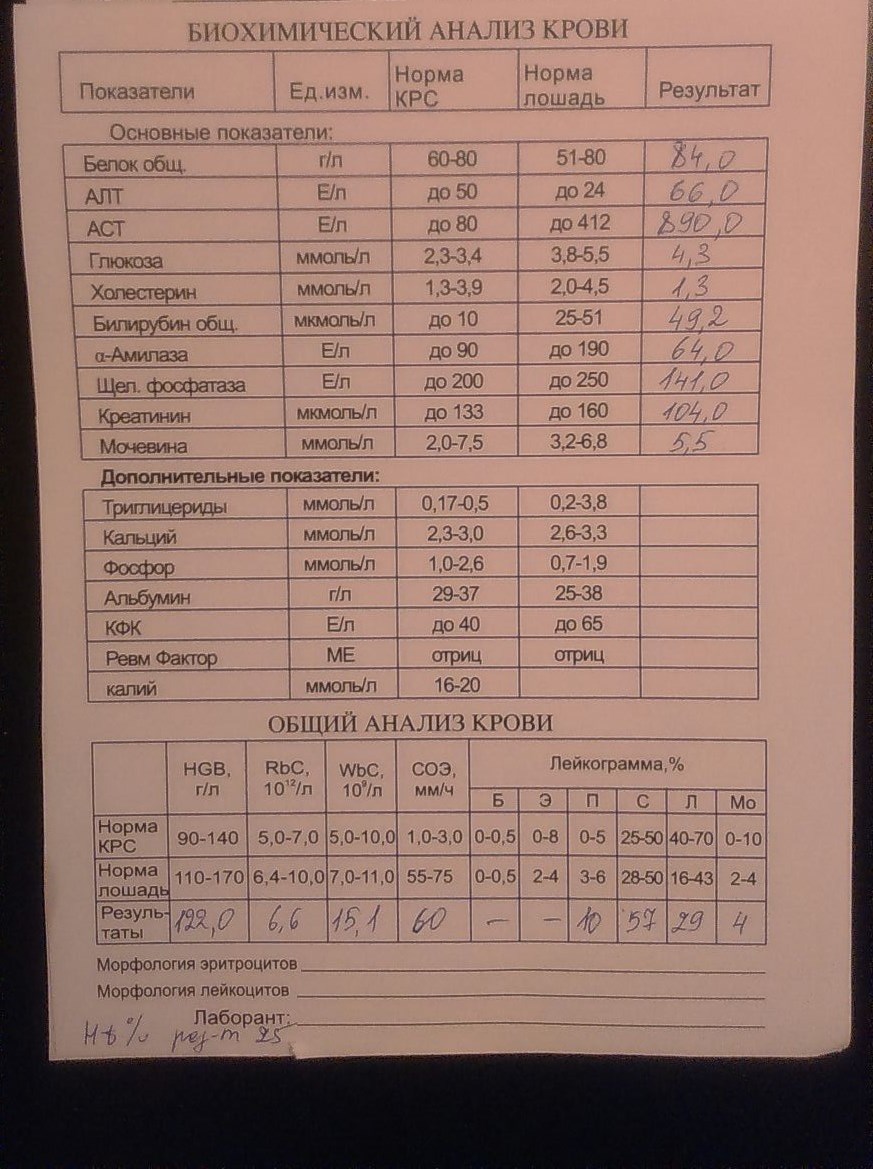 БИОХИМИЧЕСКИЙ АНАЛИЗ КРОВИ
Показатели Ед.изм. Норма КРС Норма лошадь Результат
Основные показатели:
Белок общ. г/л 60-80 51-80 84,0
АЛТ Е/л до 50 до 24 66,0
АСТ Е/л до 80 до 412 890,0
Глюкоза ммоль/л 2,3-3,4 3,8-5,5 4,3
Холестерин ммоль/л 1,3-3,9 2,0-4,5 1,3
Билирубин общ. мкмоль/л до 10 25-51 49,2
α-Амилаза Е/л до 90 до 190 64,0
Щел. фосфатаза Е/л до 200 до 250 141,0
Креатинин мкмоль/л до 133 до 160 104,0
Мочевина ммоль/л 2,0-7,5 3,2-6,8 5,5
Дополнительные показатели:
Триглицериды ммоль/л 0,17-0,5 0,2-3,8
Кальций ммоль/л 2,3-3,0 2,6-3,3
Фосфор ммоль/л 1,0-2,6 0,7-1,9
Альбумин г/л 29-37 25-38
КФК Е/л до 40 до 65
Ревм Фактор МЕ отриц отриц
калий ммоль/л 16-20
ОБЩИЙ АНАЛИЗ КРОВИ
HGB, г/л RbC, 10¹²/л WbC, 10⁹/л СОЭ, мм/ч Лейкограмма,%
Б Э П С Л Мо
Норма КРС 90-140 5,0-7,0 5,0-10,0 1,0-3,0 0-0,5 0-8 0-5 25-50 40-70 0-10
Норма лошадь 110-170 6,4-10,0 7,0-11,0 55-75 0-0,5 2-4 3-6 28-50 16-43 2-4
Резуль-таты 122,0 6,6 15,1 60 – – 10 57 29 4
Морфология эритроцитов
Морфология лейкоцитов
Лаборант:
Ht % рез-т 25